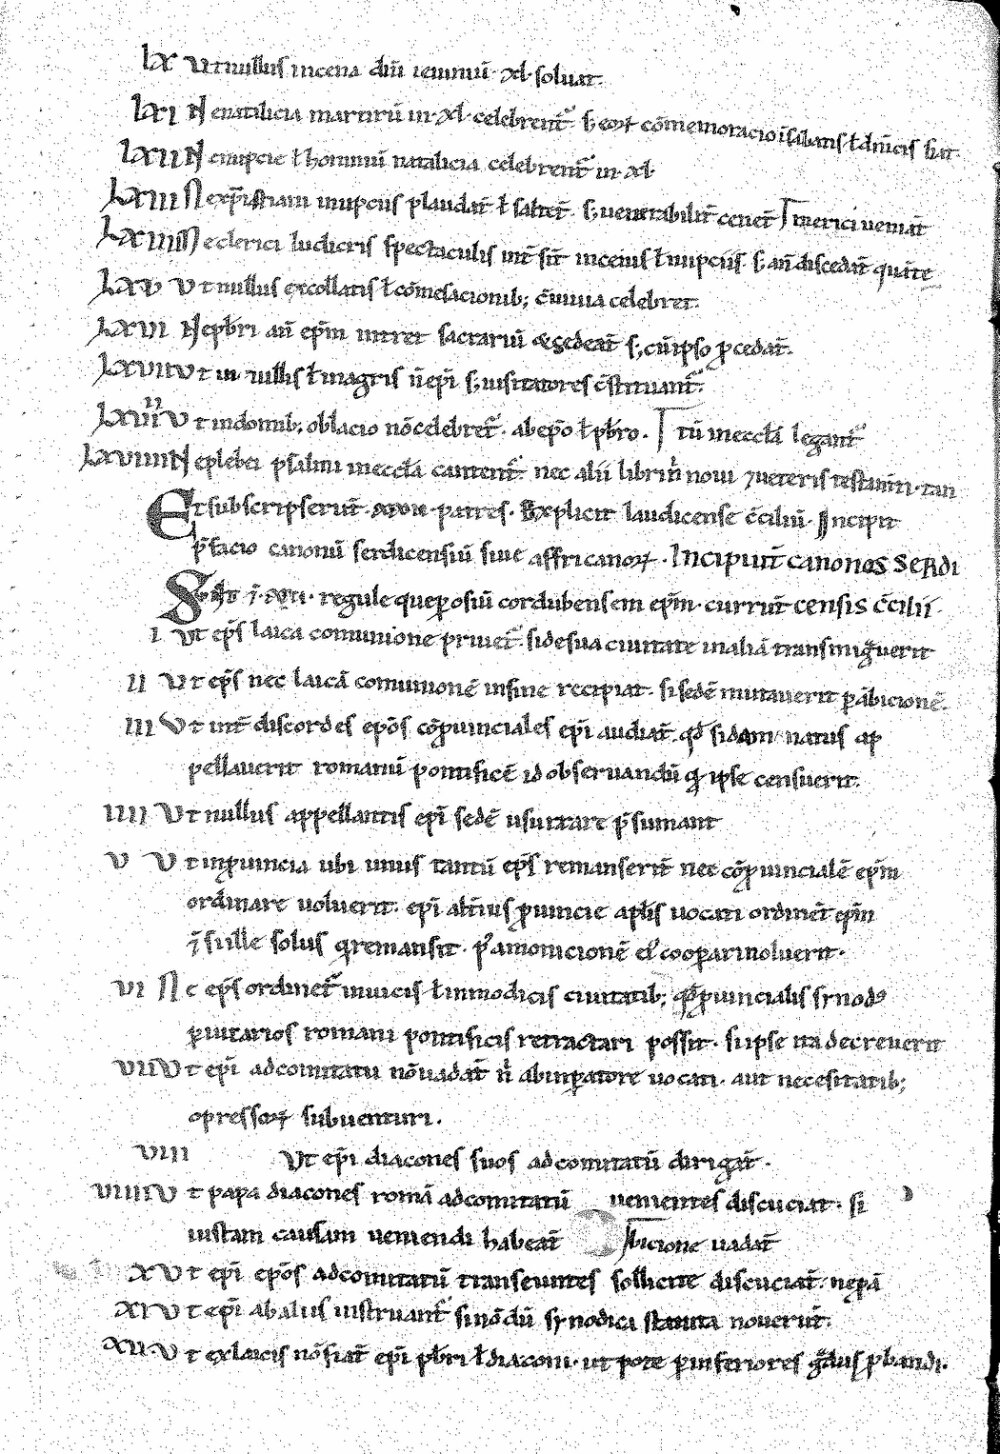 lx Ut nullus in cena dñi ieiuniū xl soluat.
lxi Ne natalicia martirū in xl celebrent̄ s; eoꝝ cōmemoracio ī sabatis ł dn̄icis fiat.
lxii Ne nupcie ł hominū natalicia celebrent̄ in xl
lxiii Ne xp̄istiani in nupciis plaudāt ł saltēt. s; uenerabilit̄ cenēt ueniāt
lxiiii Ne clerici ludicris spectaculis int̄ sīt in cenis ł nupciis s; an̄ discedāt
lxv Ut nullus ex collatis ł cōmesacionib; cōuiuia celebret.
lxvi Ne p̄bri an̄ ep̄m intret sacrariū & sedeāt s; cū ipso p̄cedāt.
lxvii Ut in uillis ł in agris n̄ ep̄i s; uisitatores cōstituant̄.
lxviii Ut in domib; oblacio nō celebret̄. ab ep̄o ł p̄bro. tū in ecclā legant̄
lxviiii Ne plebei psalmi in ecclā cantent̄. nec alii libri n̄ noui ⁊ ueteris testam̄ti. tan
Et subscripserūt. xxii. patres. Explicit laudicense cōciliū. Incipit
p̄facio canonū serdicensiū siue affricanoꝝ. Incipiūt canones serdi
Sūt ī. xxi. regule que p̄ osiū cordubensem ep̄m. currūt censis cōcilii.
i Ut ep̄s laica comunione priuet̄. si de sua ciuitate in aliā transmig̃uerit
ii Ut ep̄s nec laicā comunionē in fine recipiat. si sedē mutauerit p̄ ābicionē.
iii Ut int̄ discordes ep̄os cōp̄uinciales ep̄i audiāt. qđ si dam natus ap
pellauerit romanū pontificē id obseruandū q̄ ipse censuerit.
iiii Ut nullus appellantis ep̄i sedē usurpare p̄sumant
v Ut in p̄uincia ubi unus tantū ep̄s remanserit nec cōp̄uincialē ep̄m
ordinare uoluerit. ep̄i alt̄ius p̄uincie aplis uocati ordinēt ep̄m
ī si ille solus q̄ remansit. p̄ amonicionē ei cooparī noluerit.
vi Ne ep̄s ordinet̄ in uicis ł in modicis ciuitatib; p̄uincialis synodꝰ
p̄ uicarios romani pontificis retractari possit. si ipse ita decreuerit
vii Ut ep̄i ad comitatū nō uadāt n̄ ab inp̄atore uocati. aut necesitatib;
opressoꝝ subuenturi.
viii Ut ep̄i diacones suos ad comitatū dirigāt.
viiii Ut papa diacones romā ad comitatū uenientes discuciat. si
iustam causam ueniendi habeāt bicione uadāt
x Ut ep̄i ep̄os ad comitatū transeuntes sollicite discuciāt. ne p̄ ā
xi Ut ep̄i ab aliis instruant̄ si nōdū synodica statuta nouerūt.
xii Ut ex laicis nō fiāt ep̄i p̄bri ł diaconi. ut pote p̄ inferiores g̃dus p̄bandi.